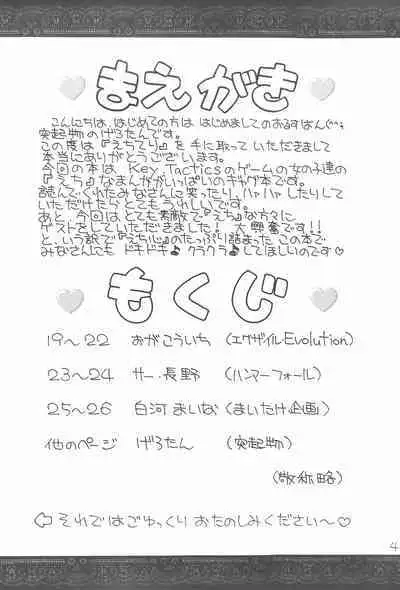 まえがき
こんにちは、はじめての方は はじめましての あるすはん(^^;
突起物のげろたんです。
この度は『えちてり』を手に取って いただきまして
本当にありがとうございます。
今回の本は、Key,Tacticsのゲームの女の子達の
『えち』なまんががいっぱいのギャグ本です。
読んでくれたみなさんに笑ったり、ハァハァしたりして
いただけたらとてもうれしいです。
あと、今回はとても素敵で『えち』な方々に
ゲストをしていただきました! 大興奮です!!
と、いう訳で『えち心』のたっぷり詰まった この本で
みなさんにも ドキドキ♪クラクラ♪してほしいのです♡
もくじ
19〜22 おがこういち (エグザイルEvolution)
23〜24 サー・長野 (ハンマーフォール)
25〜26 白河まいな (まいたけ企画)
他のページ げろたん (突起物)
(敬称略)
⇦ それではごゆっくり おたのしみください〜♡
4